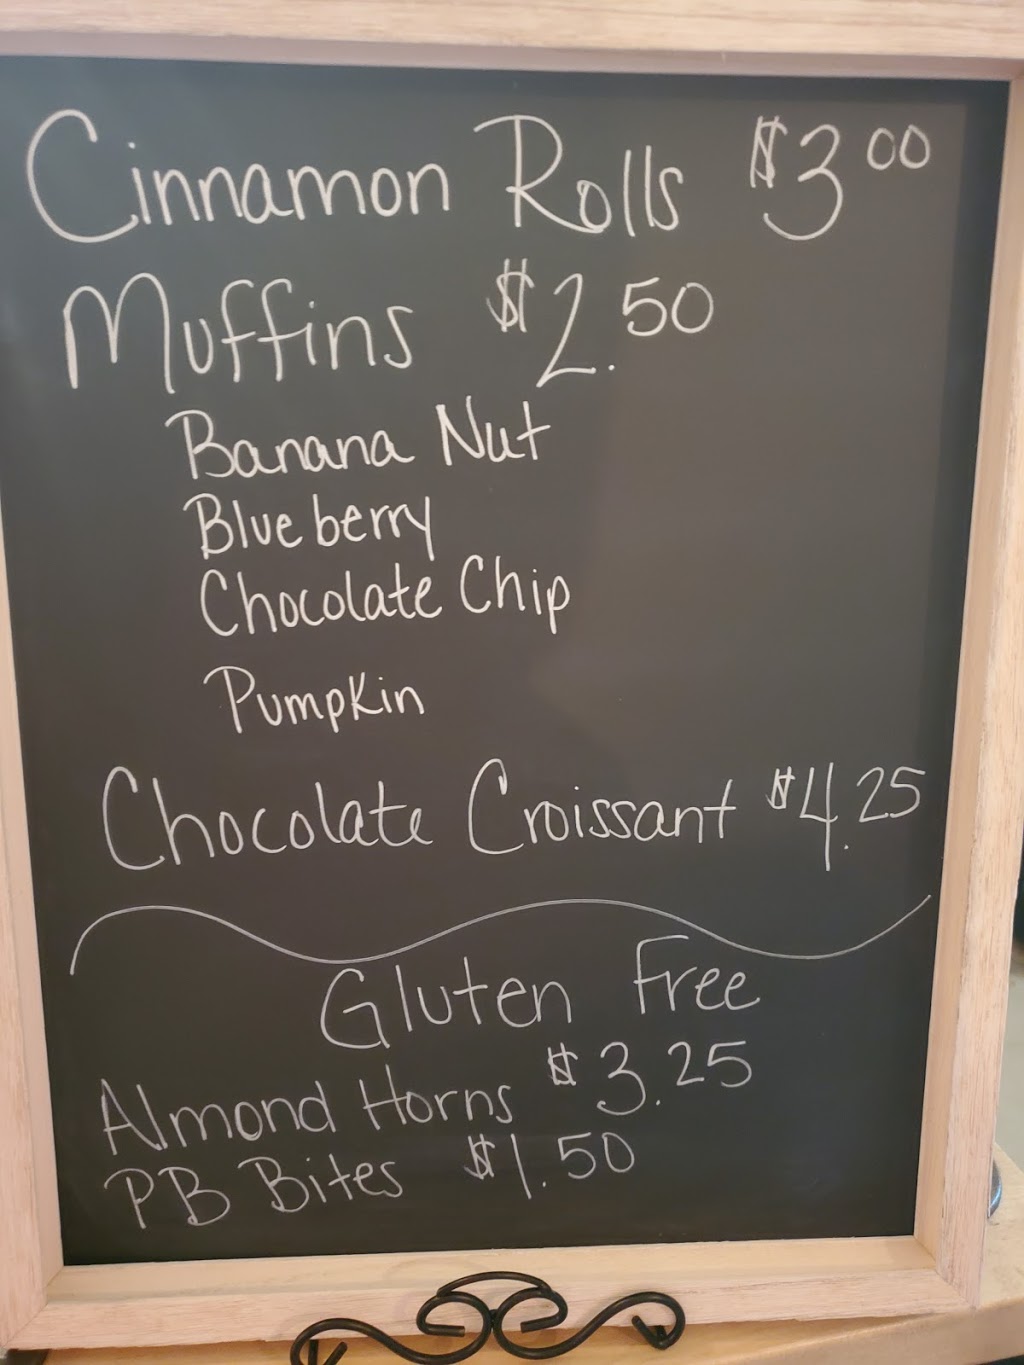 Cinnamon Rolls $3.00
Muffins $2.50
Banana Nut
Blueberry
Chocolate Chip
Pumpkin
Chocolate Croissant $4.25
Gluten Free
Almond Horns $3.25
PB Bites $1.50